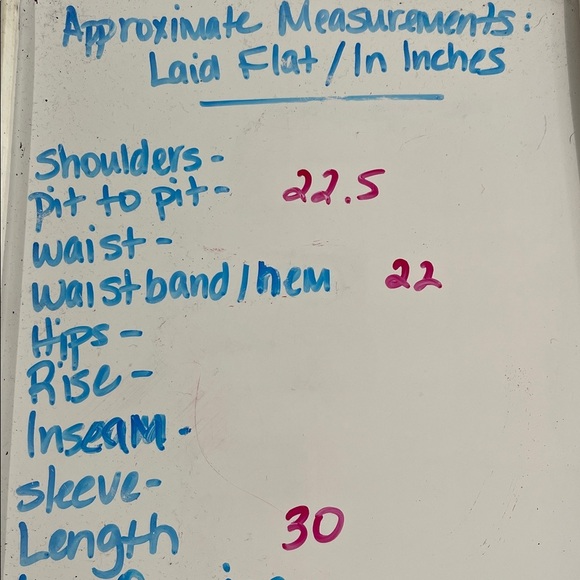 Approximate Measurements:
Laid Flat / In Inches
Shoulders-
pit to pit- 22.5
waist-
waistband/hem 22
Hips-
Rise-
Inseam-
sleeve-
Length 30